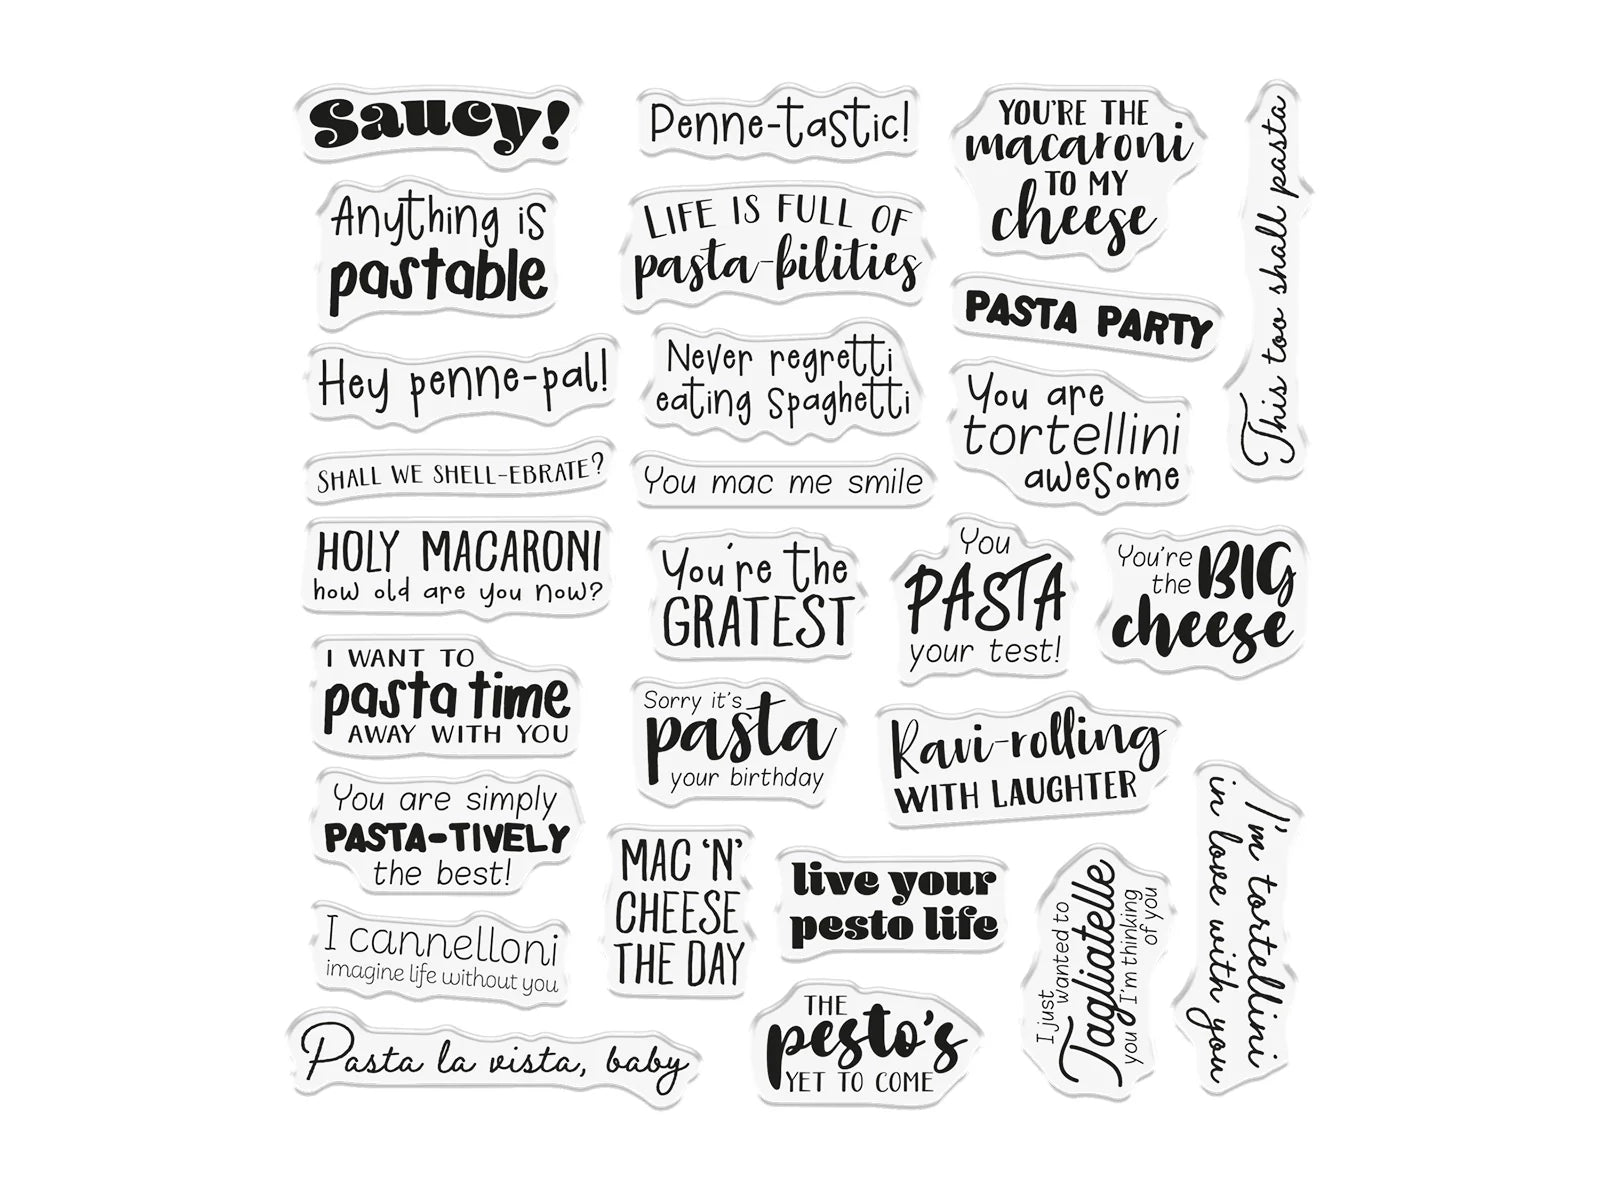 Saucy!
Penne-tastic!
YOU'RE THE
macaroni
TO MY
cheese
This too shall pasta
Anything is
pastable
LIFE IS FULL OF
pasta-bilities
PASTA PARTY
Hey penne-pal!
Never regretti
eating spaghetti
You are
tortellini
awesome
SHALL WE SHELL-EBRATE?
You mac me smile
HOLY MACARONI
how old are you now?
You're the
GRATEST
You
PASTA
your test!
You're
the BIG
cheese
I WANT TO
pasta time
AWAY WITH YOU
Sorry it's
pasta
your birthday
Ravi-rolling
WITH LAUGHTER
You are simply
PASTA-TIVELY
the best!
MAC 'N'
CHEESE
THE DAY
live your
pesto life
I just
wanted to
Tagliatelle
you I'm thinking
of you
I'm tortellini
in love with you
I cannelloni
imagine life without you
Pasta la vista, baby
THE
pesto's
YET TO COME